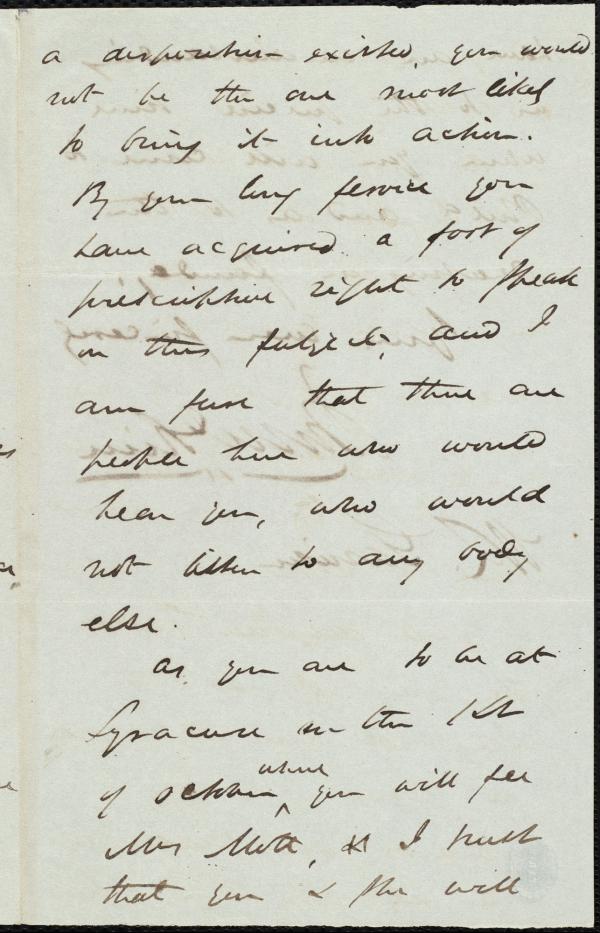 a disposition existed you would
not be the one most likely
to bring it into action.
By your long service you
have acquired a sort of
prescriptive right to speak
on this subject, and I
am sure that there are
people here who would
hear you, who would
not listen to any body
else.
As you are to be at
Syracuse on the 1st
of October, where you will see
Mrs Mott, I trust
that you & she will